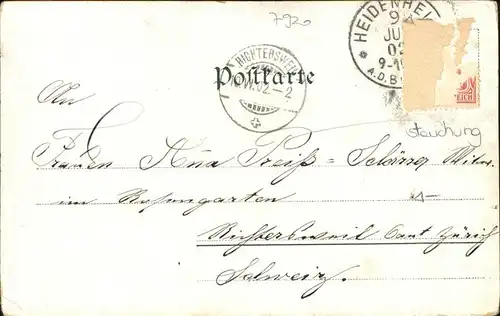 7920
HEIDENHEI
9
JU
02
9-1
A.D.B
RICHTERSWEIL
VI.02.-2
Postkarte
EICH
An
stauchung
Frauen Anna Preiß-Schürg Witwe
im Rosengarten
Richtersweil Cant Zürich
Schweiz.